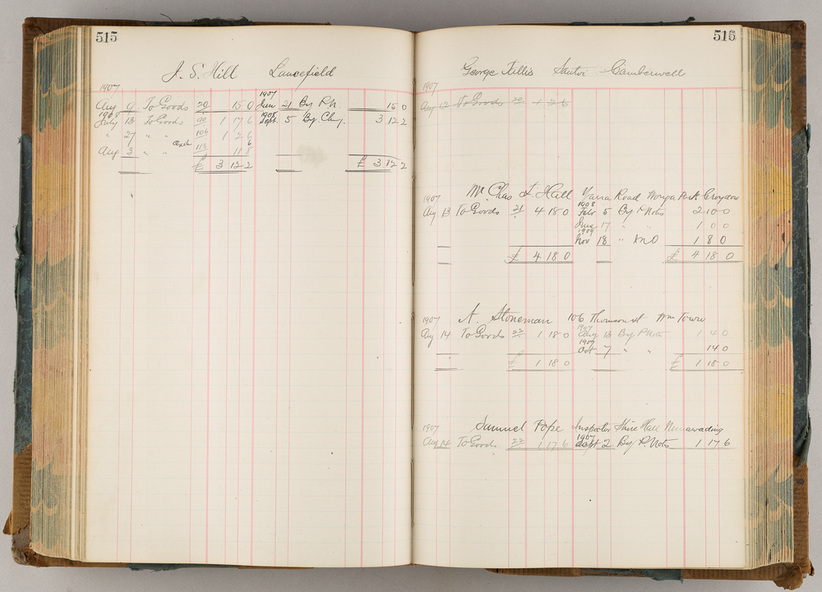 515
J. S. Hill Lancefield
1907
Aug 9 To Goods 20 15 0
1908
July 13 To Goods 90 1 17 6
" 27 " " 106 1 2 6
Aug 3 " " 112 11 8
£ 3 12 2
1907
Jun 21 By P.N. 15 0
1908
Sept 5 By Chq. 3 12 2
£ 3 12 2
516
George Tillis Camberwell
1907
Aug 12 To Goods 20 1 2 6
Mr Chas L. Hall Yarra Road Croydon
1907
Aug 13 To Goods 21 4 18 0
£ 4 18 0
1908
Feb 5 By P Notes 2 10 0
June 17 " " 1 0 0
1909
Nov 18 " M O 1 8 0
£ 4 18 0
A. Stoneman 106 Thomson St Wm Town
1907
Aug 14 To Goods 22 1 18 0
£ 1 18 0
1907
Aug 13 By P Note 1 4 0
1909
Oct 7 " " 14 0
£ 1 18 0
Samuel Pope Inspector Shire Hall Nunawading
1907
Aug 14 To Goods 22 1 17 6
1907
Sept 2 By P. Note 1 17 6